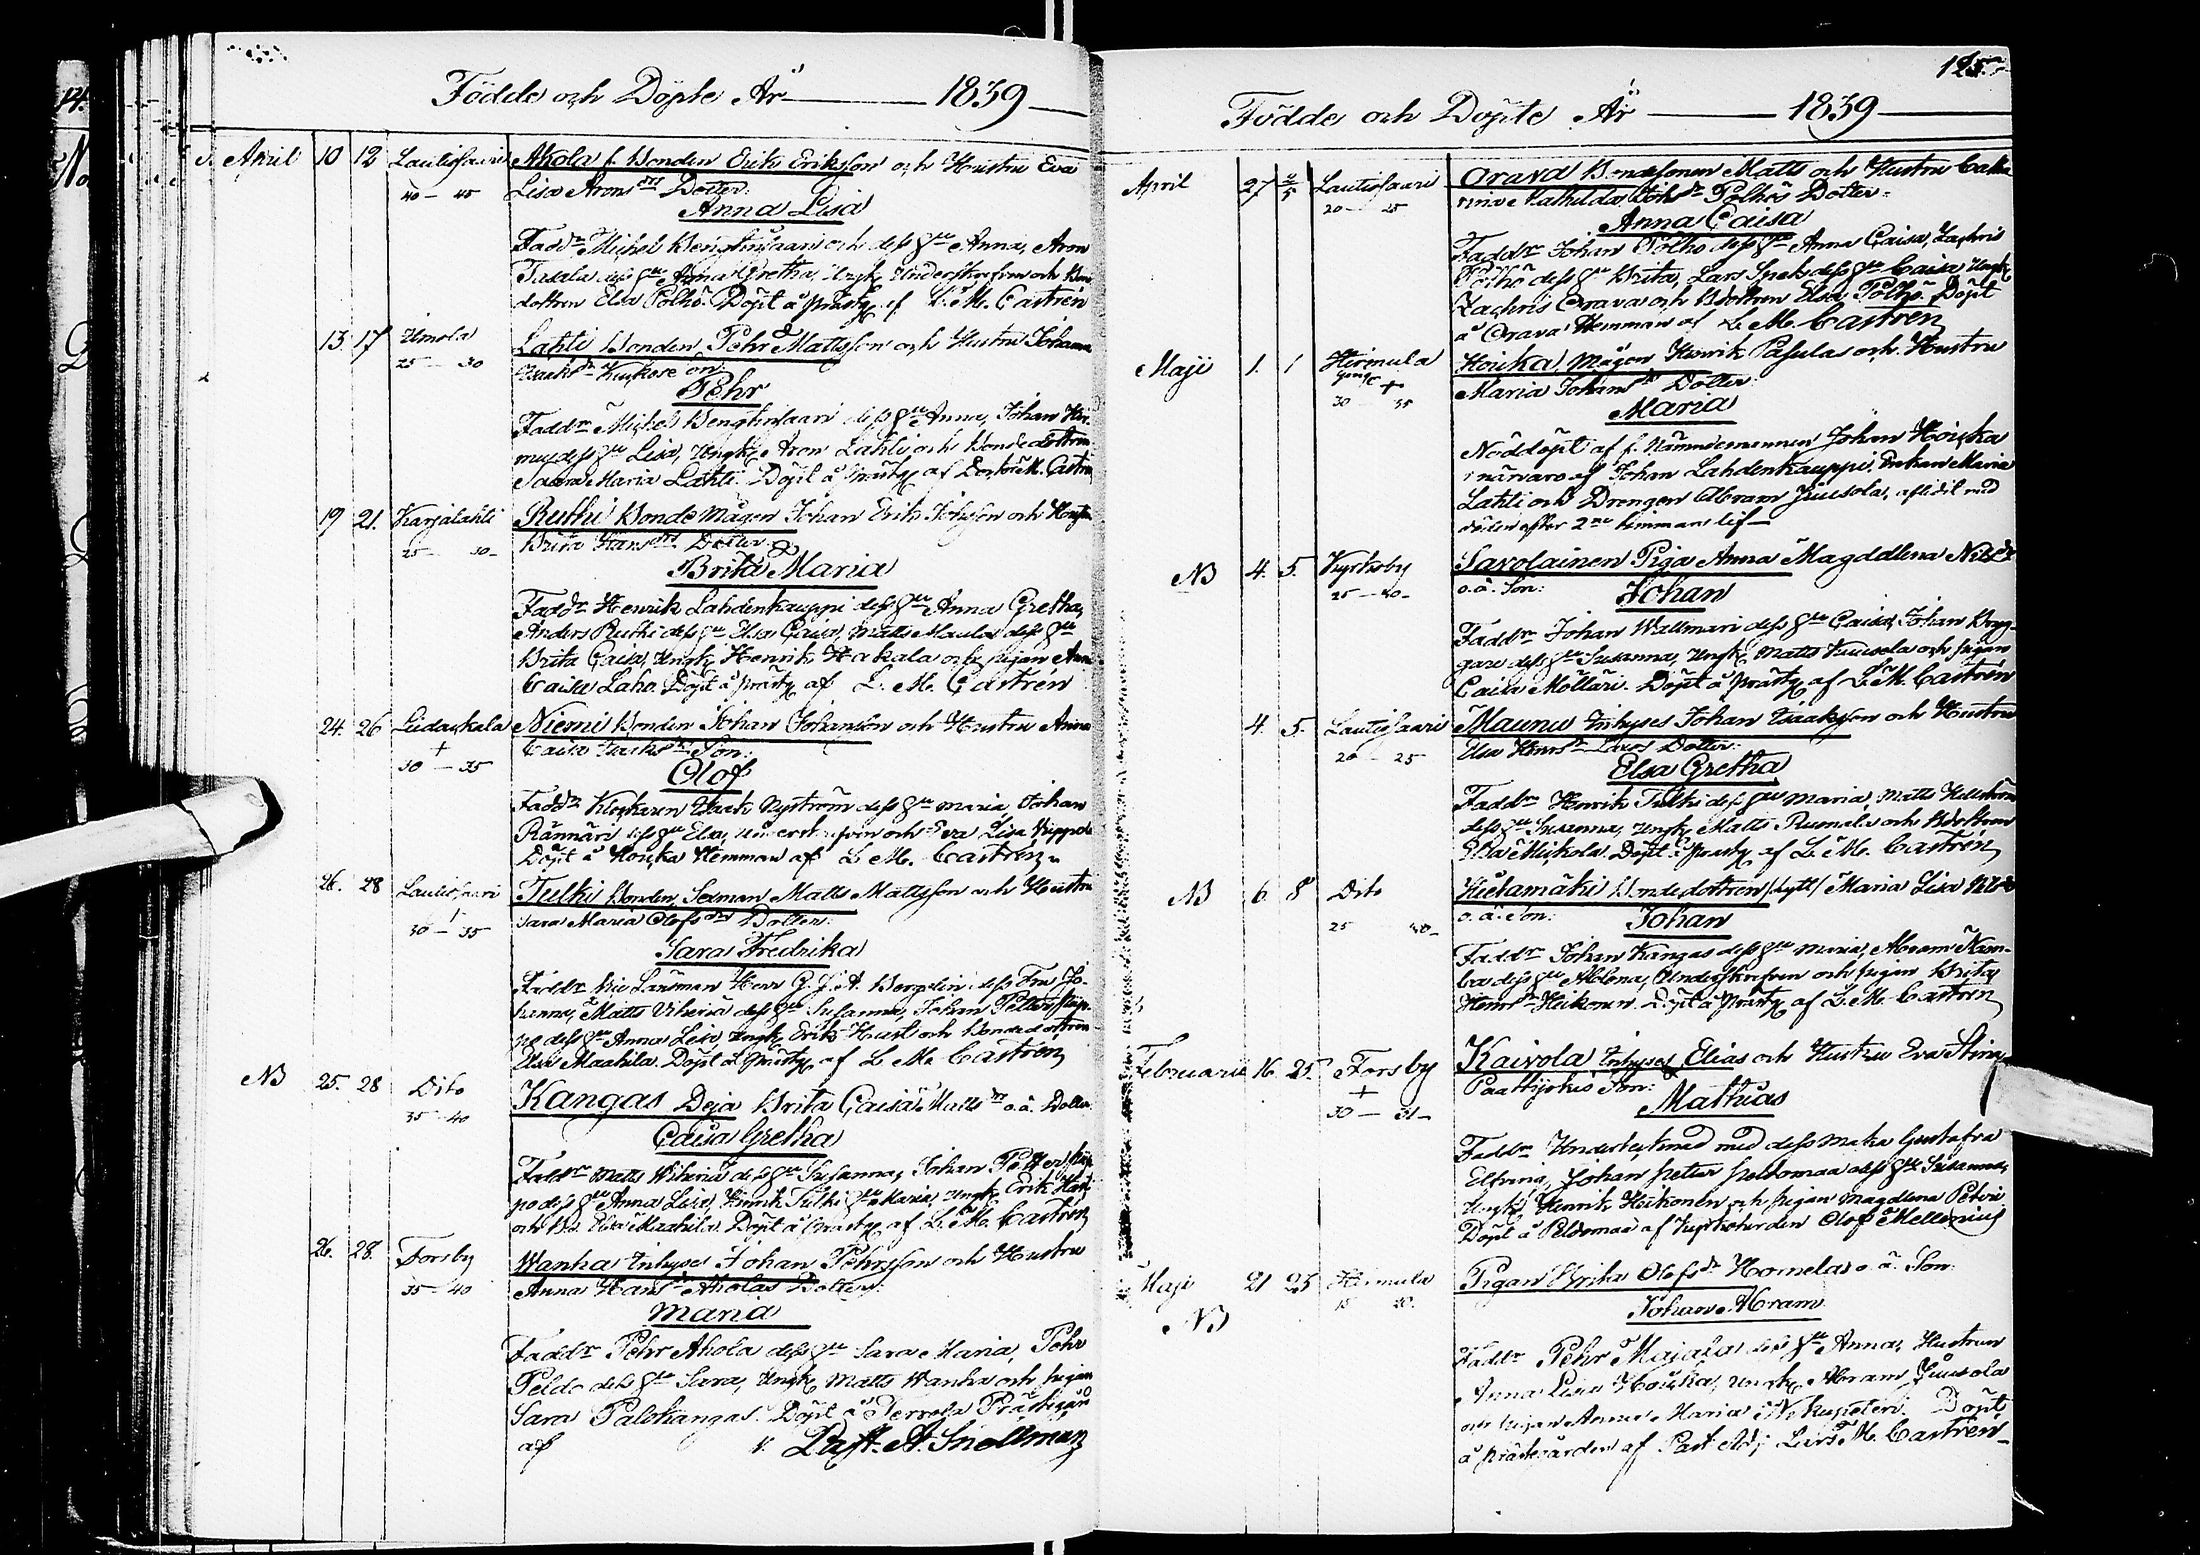 Födde och Döpte År 1839
April 10 12 Lautiosaari Akola f. Bonden Erik Eriksson och Hustru Eva
40 — 45 Lisa Arons dr Dotter:
Anna Lisa
Fadd:r Michel och dess h:u Anna, Aron
dess h:u Anna Gretha, Ungk. Underskrefven och Bonde
dottren Elsa Pölhö. Döpt å Prästg. af L. M. Castrén
13. 17 Lahti Bonden Pehr Mattsson och Hustru Johanna
25 — 30 son:
Pehr
Fadd:r Michel dess h:u Anna, Johan
dess h:u Lisa, Ungk. Aron Lahti och Bondedottren
Maria Lahti. Döpt å Prästg. af M. Castrén
19 21. Karjalahti Ruthi Bonde mågen Johan Erik Johsson och Hustru
25 — 30 — Brita Hans dr Dotter:
Brita Maria
Fadd:r Henrik Lahdenkauppi dess h:u Anna Gretha,
Anders Ruthi dess h:u Elsa Caisa, Matts Maula dess h:u
Brita Caisa, Ungk. Henrik Hakala och pigan Anna
Caisa Laho. Döpt å Prästg. af L. M. Castrén
24. 26 Niemi Bonden Johan Johansson och Hustru Anna
+ Caisa Isaks dr Son:
30 — 35 Olof
Fadd:r Klockaren Isaak Nyström dess h:u Maria, Johan
Rännäri dess h:u Elsa, Underskrefven och Eva Lisa
Döpt å Houka Hemman af L. M. Castrén
26. 28 Lautiosaari Tulki Bonden, Sexman Matts Mattsson och Hustru
30 — 35 Sara Maria Olofs dr Dotter:
Sara Fredrika
Fadd:r Länsman Herr G. J. A. Bergelin dess Fru Jo-
hanna, Matts Viheriä dess h:u Susanna, Johan Petter
dess h:u Anna Lisa, Ungk. Erik och Bondedottren
Elsa Maahila. Döpt å Prästg. af L. M. Castrén
NB 25. 28 Dito Kangas Deja Brita Caisa Matts dr o.ä. Dotter.
35 — 40 Caisa Gretha
Fadd:r Matts Wiheriä dess h:u Susanna, Johan Petter
dess h:u Anna Lisa, Henrik Tulki h:u Maria, Ungk. Erik
och Elsa Maahila. Döpt å Prästg. af L. M. Castrén
26. 28. Forsby Wanha Inhyses Johan Pehrsson och Hustru
35 — 40 Anna Hans dr Akolas Dotter:
Maria
Fadd:r Pehr Akola dess h:u Sara Maria, Pehr
Peldo dess h:u Sara, Ungk. Matts Wanha och pigan
Sara Palokangas. Döpt å Tervola Prästgård
af A. Snellman
125.
Födde och Döpte År 1839
April 27 2/5 Lautiosaari Orava Bondesonen Matts och Hustru Catha
20 — 25 rina Mathilda Joh:s dr Pölhös Dotter:
Anna Caisa
Fadd:r Johan Pölhö dess h:u Anna Caisa, Zachris
Pölhö dess h:u Brita, Lars dess h:u Caisa, Ungk.
Zachris Orava och B.dottren Elsa Pölhö. Döpt
å Orava Hemman af L. M. Castrén
Maji 1. 1 Hirmula Houka Mågen Henrik Pasulas och Hustru
+ Maria Johans dr Dotter:
30 — 35
Maria
Nöddöpt af f. Nämndemannen Johan Houka
i närvaro af Johan Lahdenkauppi, Enkan Maria
Lahti och Drengen Abram Juusola, afledit med
döden efter 2ne timmars lif —
NB 4. 5. Kyrkoby Savolainen Piga Anna Magdalena Nils dr
25 — 40 — o.ä. Son:
Johan
Fadd:r Johan Wallmari dess h:u Caisa, Johan Bryg-
gare dess h:u Susanna, Ungk. Matts Juusola och pigan
Caisa Möllari. Döpt å Prästg. af L. M. Castrén
4. 5. Lautiosaari Maunu Inhyses Johan Isaaksson och Hustru
20 — 25 Elsa Henr:s dr Dotter:
Elsa Gretha
Fadd:r Henrik Tulki dess h:u Maria, Matts
dess h:u Susanna, Ungk. Matts Rumala och B.dottren
Elsa Mickola. Döpt å Prästg. af L. M. Castrén
NB 6 8 Dito Kiekamäki Bondedottren Maria Lisa Nils dr
25 40 — o.ä. Son:
Johan
Fadd:r Johan Kangas dess h:u Maria, Abram
dess h:u Helena, Underskrefven och pigan Brita
Henr:s dr Heikonen. Döpt å Prästg. af L. M. Castrén
Februarii 16. 25. Forsby Kaivola Inhyses Elias och Hustru Eva Stina
+ Paattijokis Son:
30 — 31 — Mathias
Fadd:r Undertecknad med dess maka Gustafva
Elfving, Johan Petter Peldomaa dess h:u Susanna,
Ungk. Henrik Heikonen och pigan Magdlena
Döpt å Peldomaa af Kyrkoherden Olof Mellenius
Maji 21 23 Hirmula Pigan Brita Olofs dr Homelas o.ä. Son:
NB 15 20. Johan Abram
Fadd:r Pehr Majala dess h:u Anna, Hustrun
Anna Lisa Houka, Ungk. Abram Juusola
och pigan Anna Maria Döpt
å prästgården af Past. Adj. Lars M. Castrén —